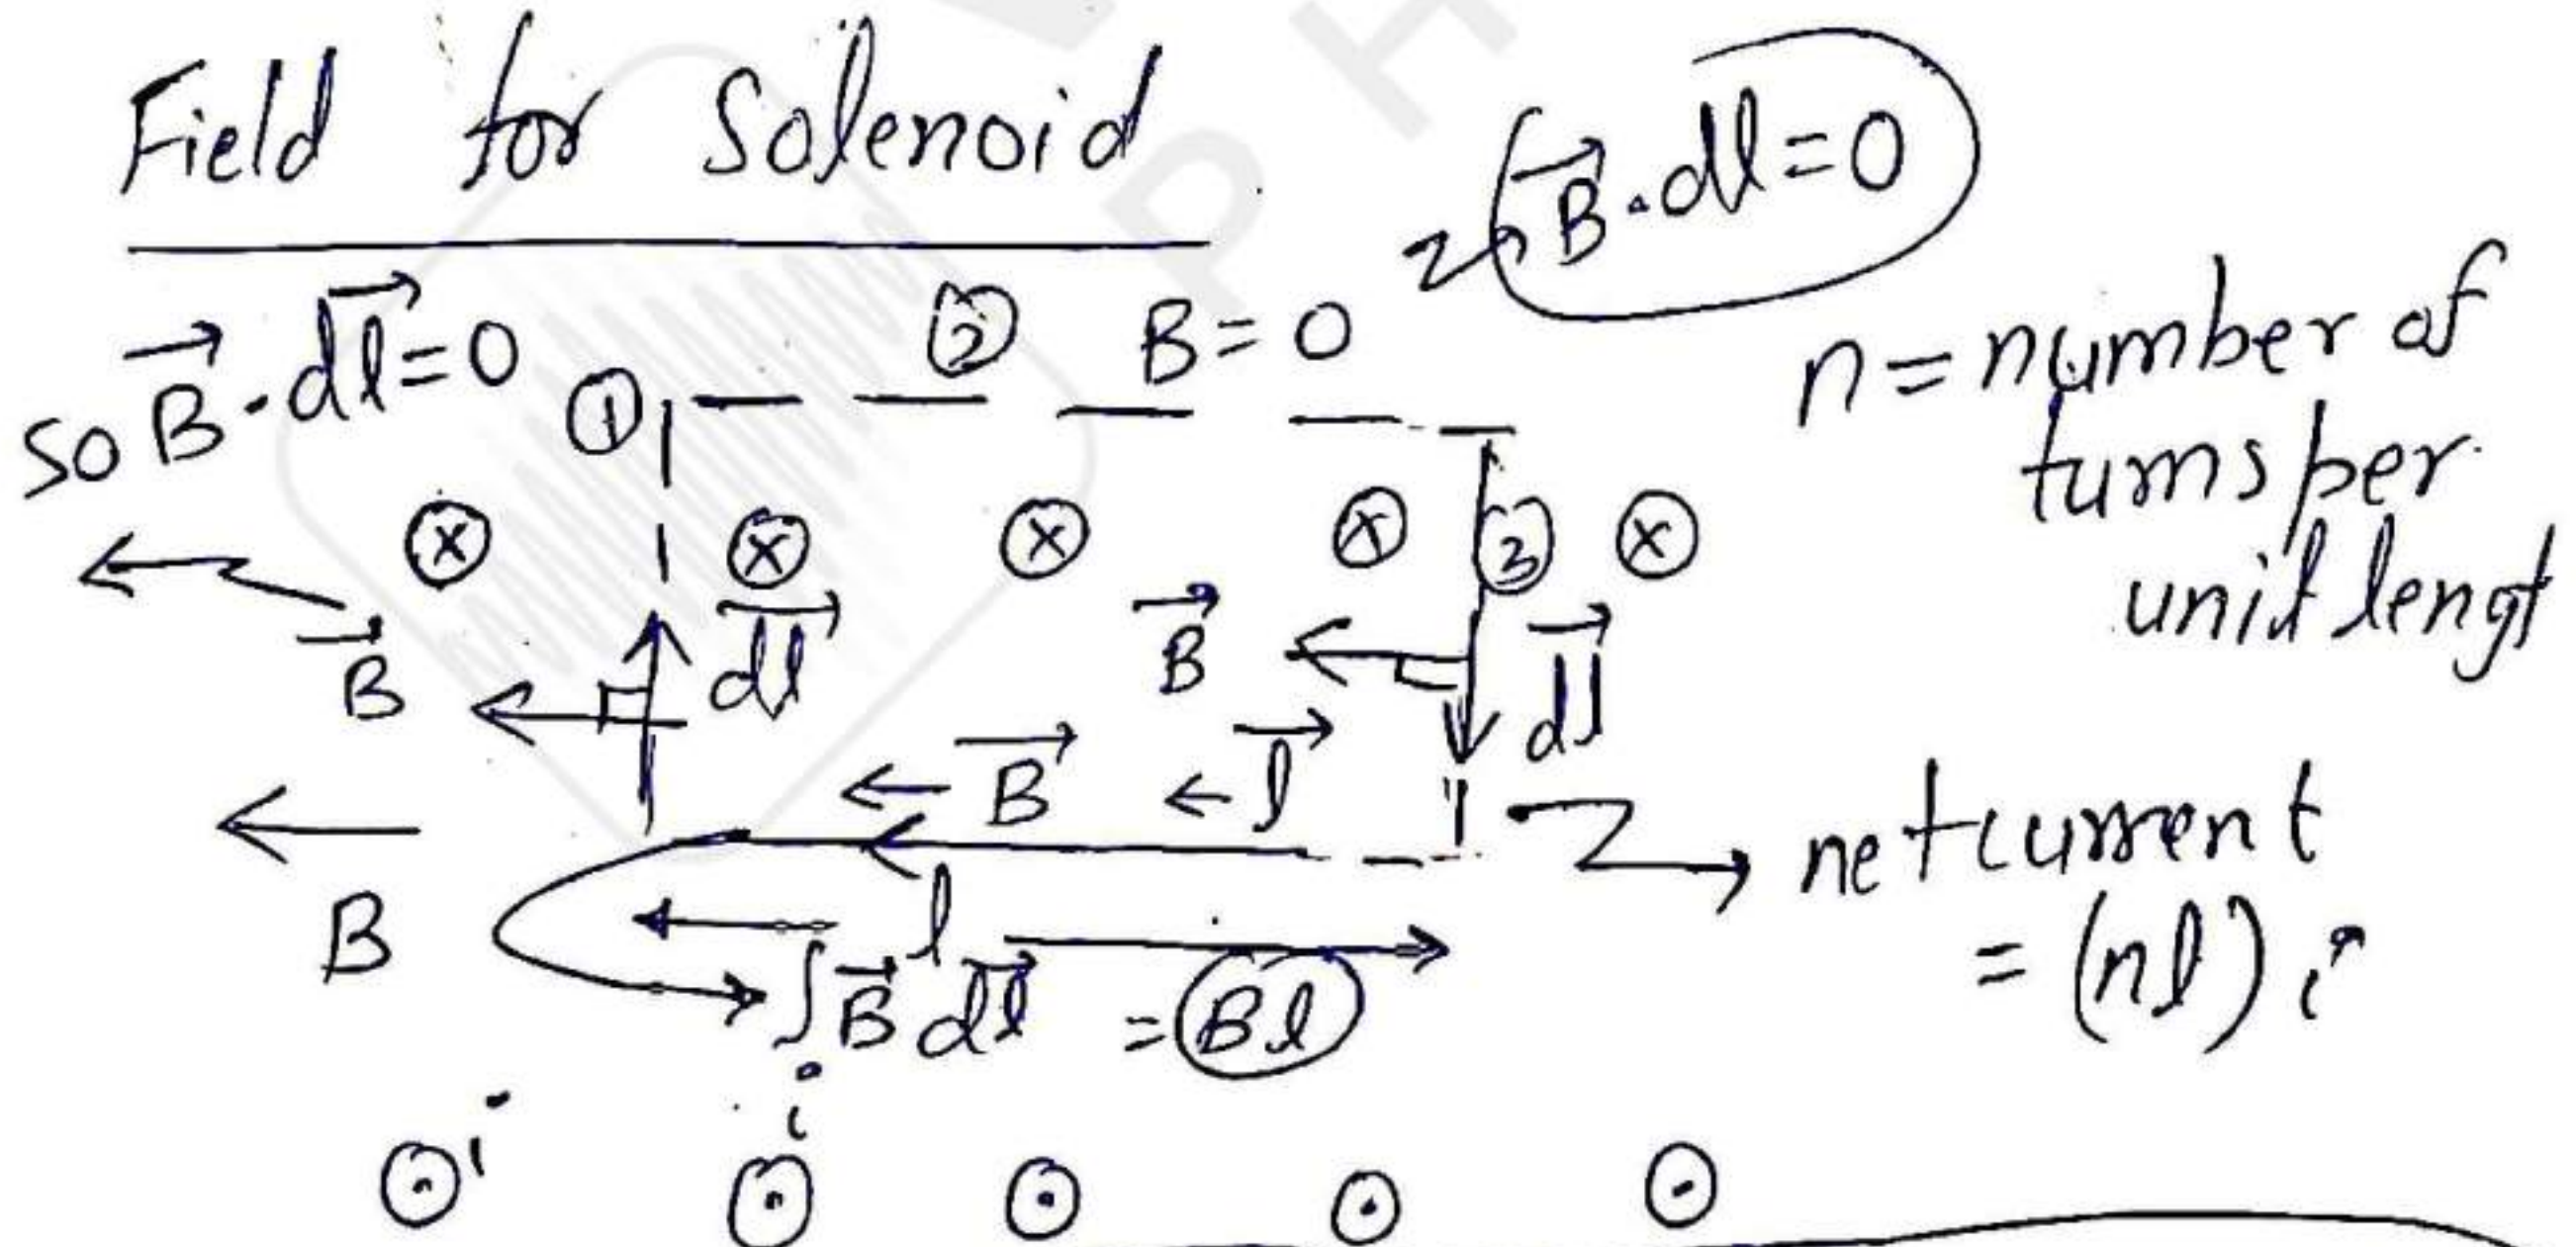 Field for Solenoid
∫B⃗.dl=0
so B⃗.dl⃗=0
① ② B=0
n=number of
turns per
unit lengt
ⓧ ⓧ ⓧ ⓧ ③ ⓧ
B⃗ dl⃗ B⃗ dl⃗
B⃗ l⃗
B l
net current
=(nl) i
∫B⃗ dl⃗ = Bl
i i
⊙ ⊙ ⊙ ⊙ ⊙